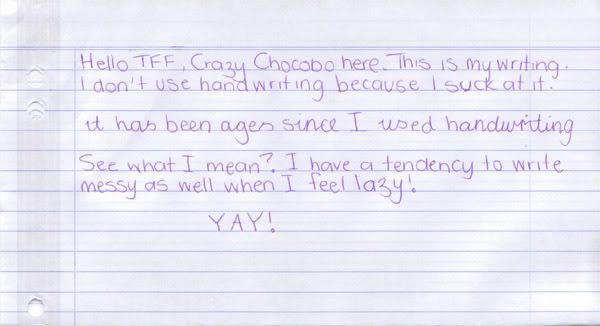 Hello TFF, Crazy Chocobo here. This is my writing.
I don't use handwriting because I suck at it.
it has been ages since I used handwriting
See what I mean?. I have a tendency to write
messy as well when I feel lazy!
YAY!